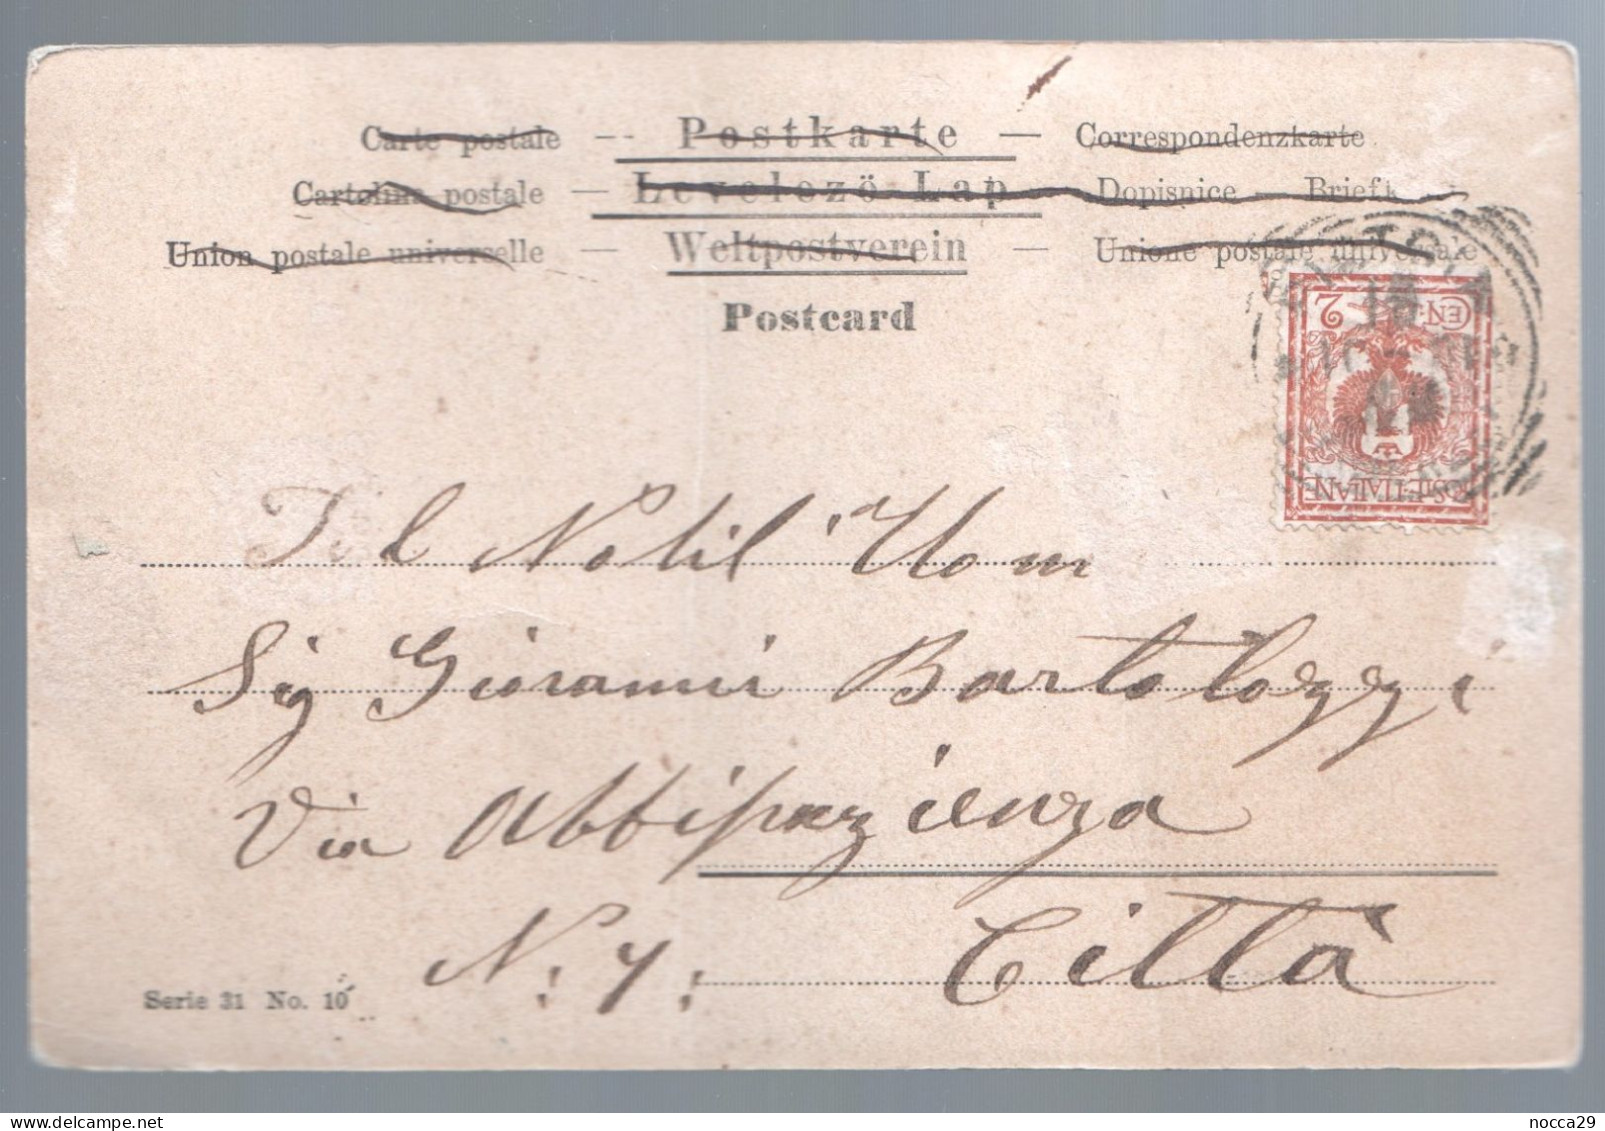 Carte postale — Postkarte — Correspondenzkarte
Cartolina postale — Levelező-Lap — Dopisnice — Briefk
Union postale universelle — Weltpostverein — Unione postale universale
Postcard
CEN. 2
POSTE ITALIANE
Il Nobil Uom
Sig Giovanni Bartolozzi
Via Abbipazienza
N. 7. Città
Serie 31 No. 10
nocca29